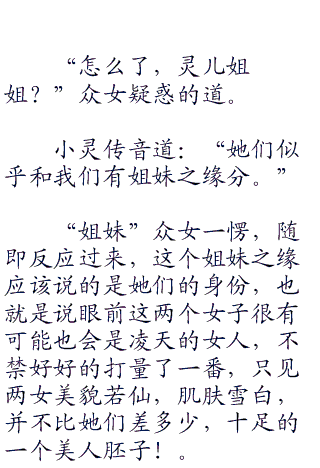 “怎么了，灵儿姐
姐？”众女疑惑的道。
小灵传音道：“她们似
乎和我们有姐妹之缘分。”
“姐妹”众女一愣，随
即反应过来，这个姐妹之缘
应该说的是她们的身份，也
就是说眼前这两个女子很有
可能也会是凌天的女人，不
禁好好的打量了一番，只见
两女美貌若仙，肌肤雪白，
并不比她们差多少，十足的
一个美人胚子！。